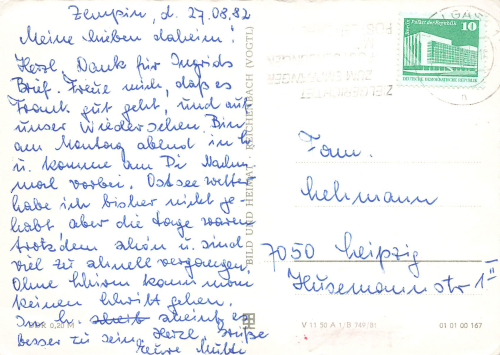 Zempin, d. 27.08.82
Meine lieben daheim!
Herzl. Dank für Ingrids
Brief. Freue mich, daß es
Frank gut geht, und auf
unser Wiedersehen. Bin
am Montag abend in L
u. komme am Di Nachm.
mal vorbei. Ostseewetter
habe ich bisher nicht ge-
habt, aber die Tage waren
trotzdem schön u. sind
viel zu schnell vergangen.
Ohne Schirm kann man
keinen Schritt gehen.
scheint es
besser zu sein. Herzl. Grüße
Eure Mutti
BILD UND HEIMAT · REICHENBACH (VOGTL)
Palast der Republik
10
DEUTSCHE DEMOKRATISCHE REPUBLIK
Fam.
Lehmann
7050 Leipzig
Husemannstr 1
0,20 M
V 11 50 A 1/B 749/81
01 01 00 167